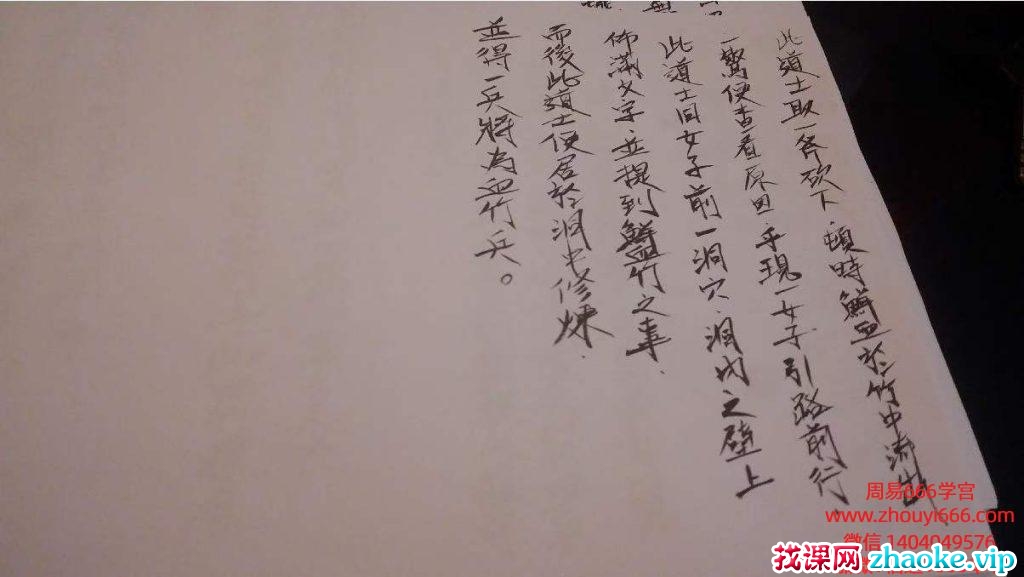 此道士取一斧砍下、頓時鮮血於竹中流出、
一驚便查看原因、乎現一女子引路前行、
此道士因女子前一洞穴、洞內之壁上
佈滿文字、並提到鮮血竹之事、
而後此道士便居於洞中修煉、
並得一兵將為血竹兵。
周易666学宫
www.zhouyi666.com
微信 1404049576
找课网 zhaoke.vip